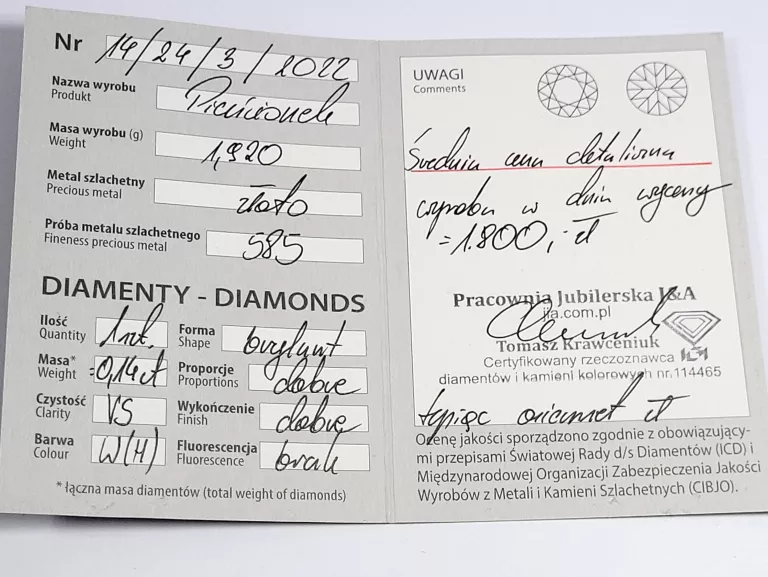 Nr 14/24/3/2022
Nazwa wyrobu Pierścionek
Produkt
Masa wyrobu (g) 1,920
Weight
Metal szlachetny złoto
Precious metal
Próba metalu szlachetnego 585
Fineness precious metal
DIAMENTY - DIAMONDS
Ilość 1szt. Forma brylant
Quantity Shape
Masa* =0,14ct Proporcje dobre
Weight Proportions
Czystość VS Wykończenie dobre
Clarity Finish
Barwa W(H) Fluorescencja brak
Colour Fluorescence
* łączna masa diamentów (total weight of diamonds)
UWAGI
Comments
Średnia cena detaliczna
wyrobu w dniu wyceny
=1.800,-zł
Pracownia Jubilerska J&A
ija.com.pl
Tomasz Krawceniuk
Certyfikowany rzeczoznawca
diamentów i kamieni kolorowych nr.114465
tysiąc osiemset zł
Ocenę jakości sporządzono zgodnie z obowiązujący-
mi przepisami Światowej Rady d/s Diamentów (ICD) i
Międzynarodowej Organizacji Zabezpieczenia Jakości
Wyrobów z Metali i Kamieni Szlachetnych (CIBJO).